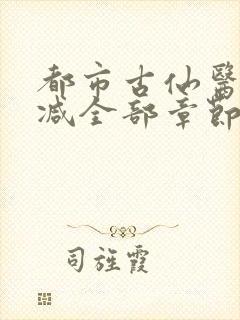 都市古仙醫
减全部章節
司旌霞